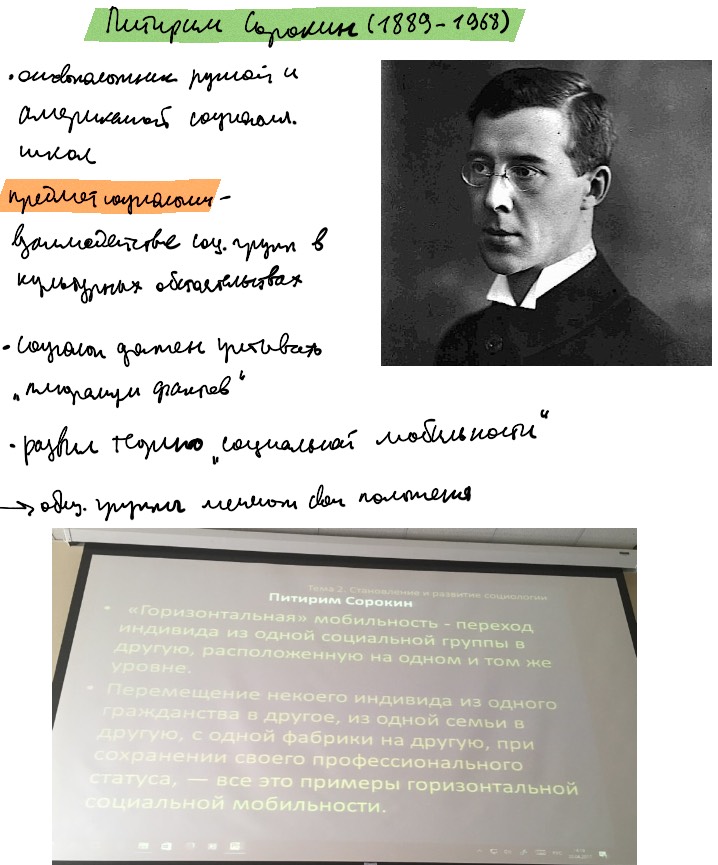 Питирим Сорокин (1889-1968)
• основоположник русской и
американской социолог.
школ
предмет социологии -
взаимодействие соц. групп в
культурных обстоятельствах
• социолог должен учитывать
„плюрализм фактов“
• развил теорию „социальной мобильности“
→ общ. группы меняют свои положения
Тема 2. Становление и развитие социологии
Питирим Сорокин
• «Горизонтальная» мобильность - переход
индивида из одной социальной группы в
другую, расположенную на одном и том же
уровне.
• Перемещение некоего индивида из одного
гражданства в другое, из одной семьи в
другую, с одной фабрики на другую, при
сохранении своего профессионального
статуса, — все это примеры горизонтальной
социальной мобильности.